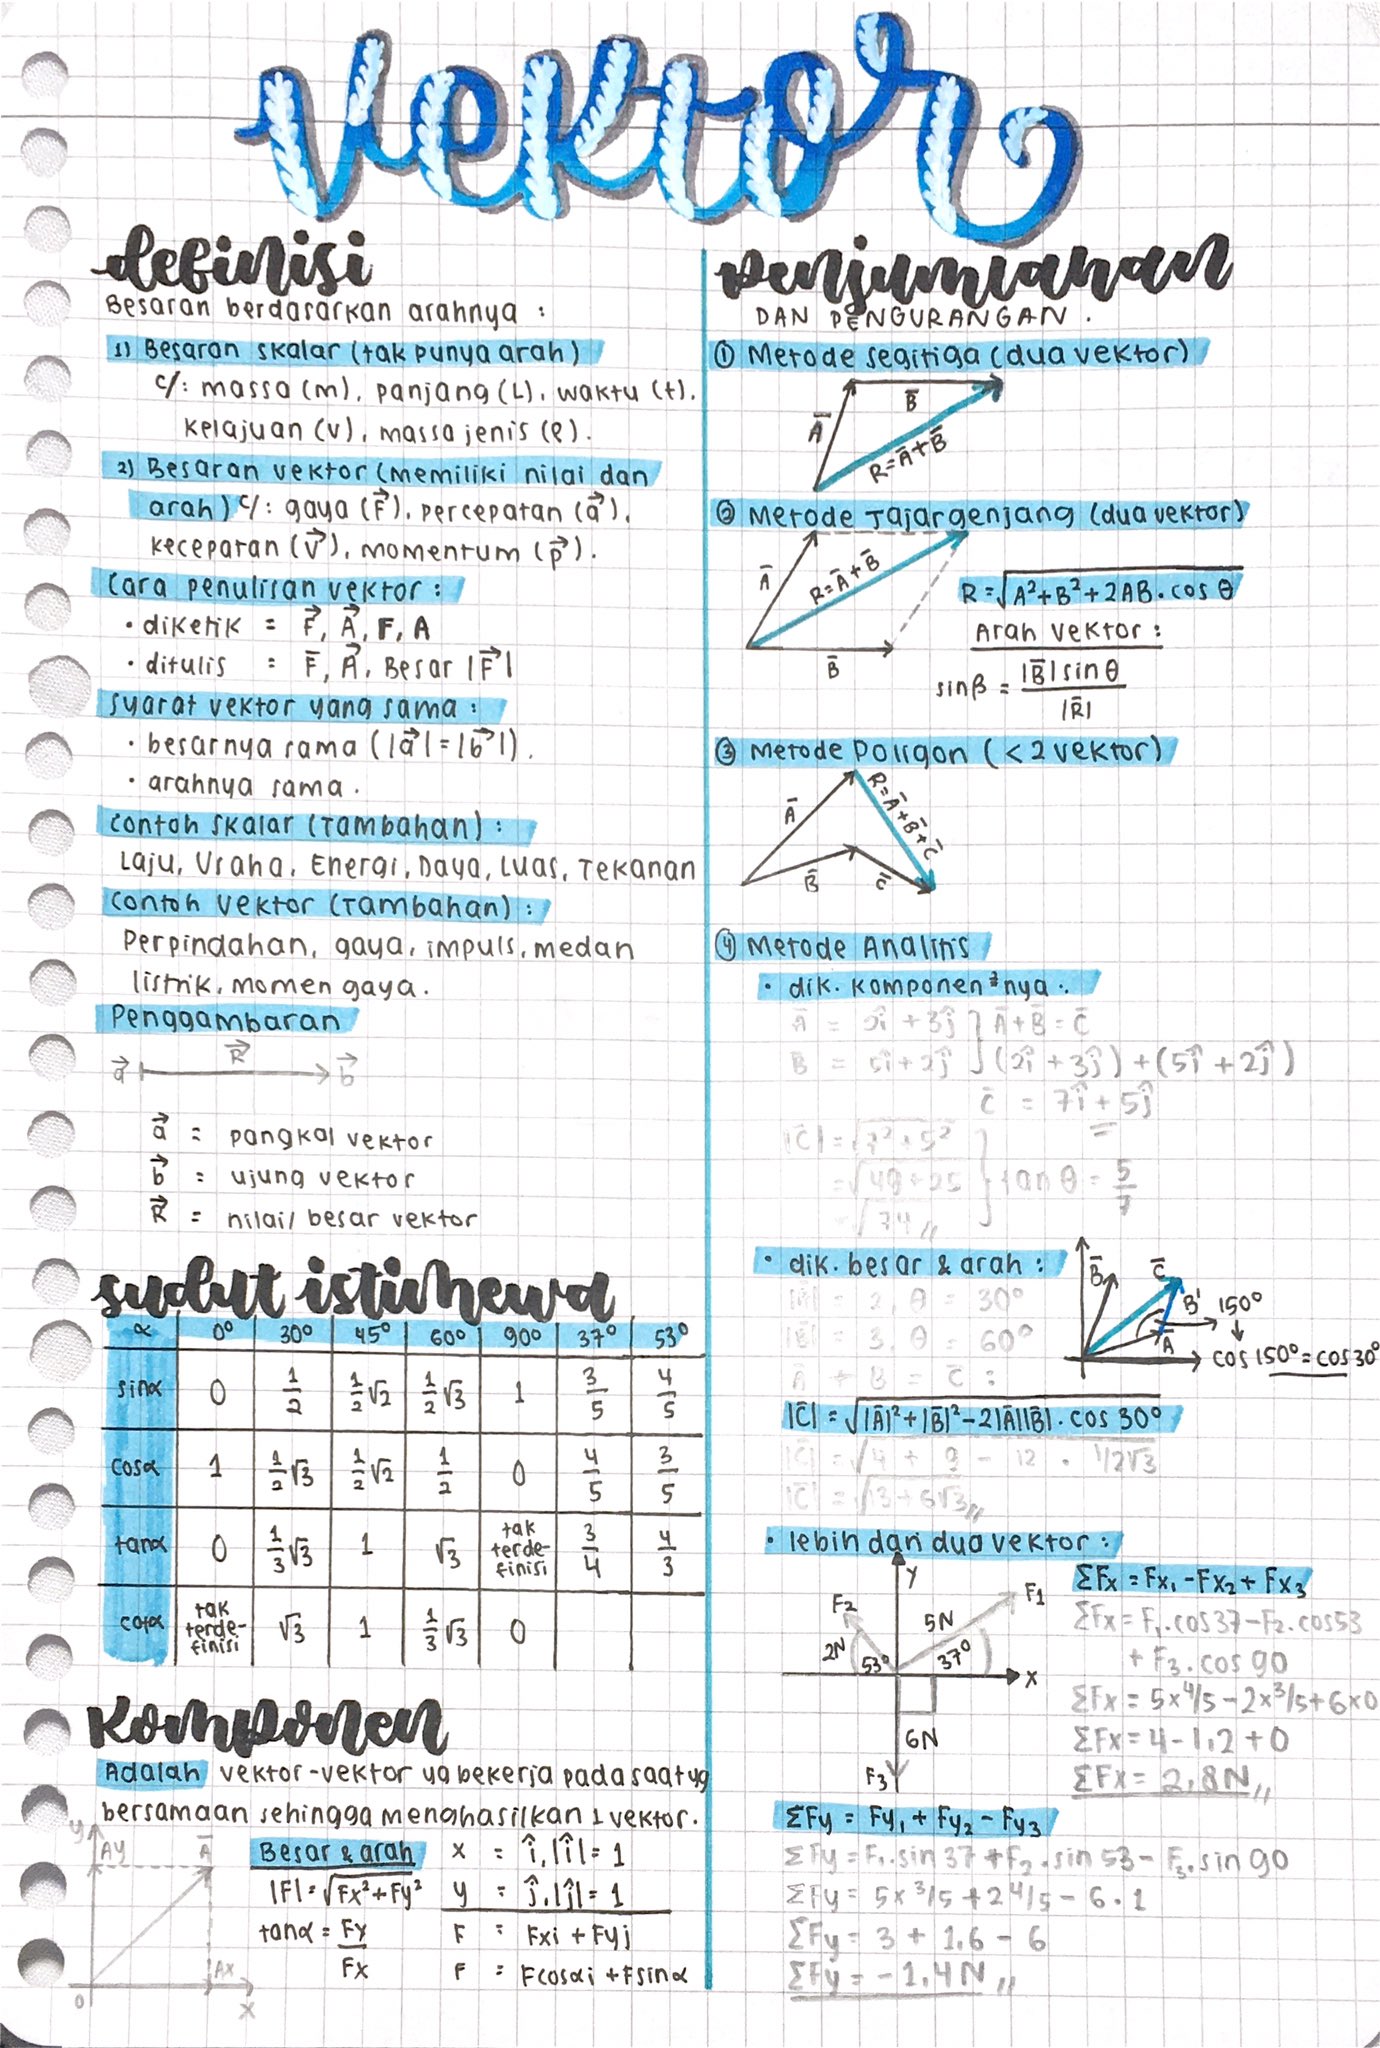 vektor
definisi
Besaran berdasarkan arahnya :
1) Besaran skalar (tak punya arah)
c/: massa (m), panjang (L), waktu (t),
kelajuan (v), massa jenis (ρ).
2) Besaran vektor (memiliki nilai dan
arah) c/: gaya (F⃗), percepatan (a⃗),
kecepatan (v⃗), momentum (p⃗).
Cara penulisan vektor :
• diketik = F⃗, A⃗, F, A
• ditulis = F̄, A⃗, Besar |F⃗|
syarat vektor yang sama :
• besarnya sama (|a⃗| = |b⃗|).
• arahnya sama.
contoh skalar (Tambahan) :
Laju, Usaha, Energi, Daya, Luas, Tekanan
contoh vektor (Tambahan) :
Perpindahan, gaya, impuls, medan
listrik, momen gaya.
Penggambaran
a⃗ R⃗ b⃗
a⃗ = pangkal vektor
b⃗ = ujung vektor
R⃗ = nilai/ besar vektor
sudut istimewa
α 0° 30° 45° 60° 90° 37° 53°
sinα 0 1/2 1/2√2 1/2√3 1 3/5 4/5
cosα 1 1/2√3 1/2√2 1/2 0 4/5 3/5
tanα 0 1/3√3 1 √3 tak terde-finisi 3/4 4/3
cotα tak terde-finisi √3 1 1/3√3 0
Komponen
Adalah vektor-vektor yg bekerja pada saat yg
bersamaan sehingga menghasilkan 1 vektor.
y Ay Ā
Ax
0 x
Besar & arah
|F| = √Fx²+Fy²
tanα = Fy/Fx
x = î, |î| = 1
y = ĵ, |ĵ| = 1
F = Fxi + Fyj
F = Fcosαi + Fsinα
Penjumlahan
DAN PENGURANGAN.
① Metode segitiga (dua vektor)
B̄
Ā
R=Ā+B̄
② Metode Jajargenjang (dua vektor)
Ā
R=Ā+B̄
B̄
R = √A²+B²+2AB.cos θ
Arah vektor :
sinβ = |B̄| sin θ/|R̄|
③ Metode Poligon (<2 vektor)
Ā
R=Ā+B̄+C̄
B̄
C̄
④ Metode Analitis
• dik. komponen²nya :
Ā = 2î + 3ĵ } Ā+B̄ = C̄
B = 5î + 2ĵ (2î + 3ĵ) + (5î + 2ĵ)
C̄ = 7î + 5ĵ
|C̄| = √7²+5²
= √49+25 } tan θ = 5/7
= √74 //
• dik. besar & arah :
|Ā| = 2, θ = 30°
|B̄| = 3, θ = 60°
Ā + B = C̄ :
B̄ C̄
B' 150°
Ā
cos 150° = cos 30°
|C̄| = √|Ā|²+|B̄|²-2|Ā||B̄|. cos 30°
|C̄| = √4 + 9 - 12 . 1/2√3
|C̄| = √13+6√3 //
• lebih dari dua vektor :
Y
F2 F1
5N
2N 53° 37° X
6N
F3
ΣFx = Fx₁ - Fx₂ + Fx₃
ΣFx = F₁.cos37 - F₂.cos53
+ F₃.cos 90
ΣFx = 5x4/5 - 2x3/5 + 6x0
ΣFx = 4 - 1,2 + 0
ΣFx = 2,8N //
ΣFy = Fy₁ + Fy₂ - Fy₃
ΣFy = F₁.sin 37 + F₂.sin 53 - F₃.sin 90
ΣFy = 5x3/5 + 2 4/5 - 6.1
ΣFy = 3 + 1,6 - 6
ΣFy = -1,4N //